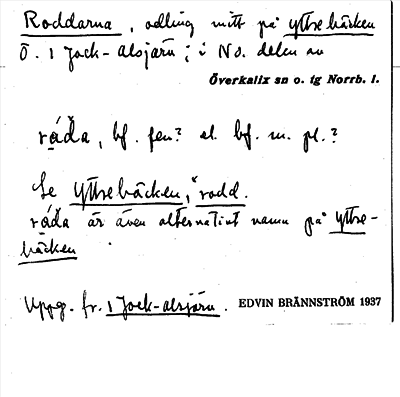 Roddarna, odling mitt på yttrebäcken
Ö. 1 Jock-alsjärn; i NO. delen av
Överkalix sn o. tg Norrb. l.
ráđa, bf. fen? el. bf. m. pl.?
Se yttrebäcken, rodd.
ráđa är även alternativt namn på yttre-
bäcken
Uppg. fr. 1 Jock-alsjärn. EDVIN BRÄNNSTRÖM 1937